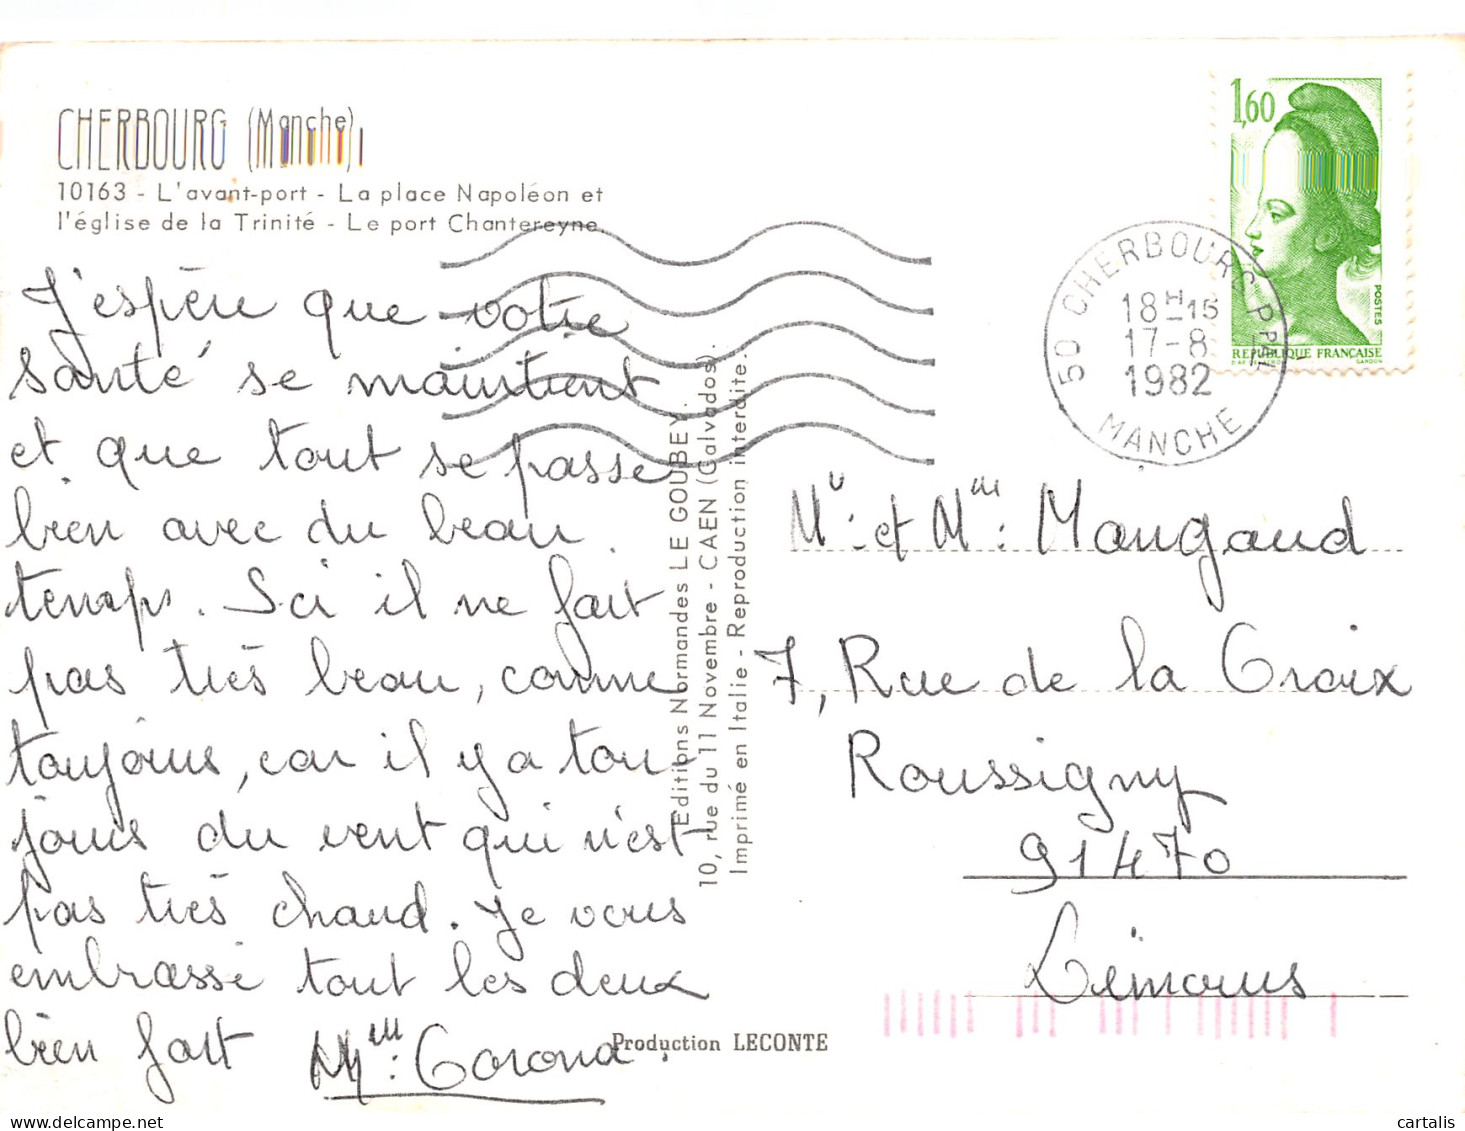 CHERBOURG (Manche)
10163 - L'avant-port - La place Napoléon et
l'église de la Trinité - Le port Chantereyne
J'espère que votre
santé se maintient
et que tout se passe
bien avec du beau
temps. Ici il ne fait
pas très beau, comme
toujours, car il y a tou-
jours du vent qui n'est
pas très chaud. Je vous
embrasse tout les deux
bien fort Mme: Corona.
Editions Normandes LE GOUBEY.
10, rue du 11 Novembre - CAEN (Calvados).
Imprimé en Italie - Reproduction interdite.
Production LECONTE
1,60
POSTES
REPUBLIQUE FRANCAISE
GANDON
50 CHERBOURG PPAL
18H15
17-8
1982
MANCHE
Mr: et Mme: Mangaud
7, Rue de la Croix
Roussigny
91470
Limours
cartalis